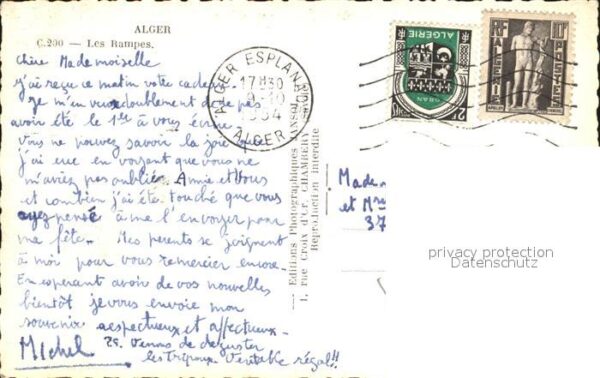 ALGER
C.200 — Les Rampes.
Chère Mademoiselle
j'ai reçu ce matin votre cadeau.
Je m'en veux doublement de ne pas
avoir été le 1er à vous écrire.
Vous ne pouvez savoir la joie que
j'ai eue en voyant que vous ne
m'aviez pas oublié Annie et Vous
et combien j'ai été touché que vous
ayez pensé à me l'envoyer pour
ma fête. Mes parents se joignent
à moi pour vous remercier encore.
En espérant avoir de vos nouvelles
bientôt je vous envoie mon
souvenir respectueux et affectueux.
Michel
PS. Venons de déguster
les tripoux Véritable régal!!
Editions Photographiques
1, rue Croix d'Or, CHAMBÉRY
Reproduction interdite
ALGER ESPLANADE
17H30
ALGER
ALGERIE
ORAN
ALGERIE
POSTES
Made
et Mme
37
privacy protection
Datenschutz